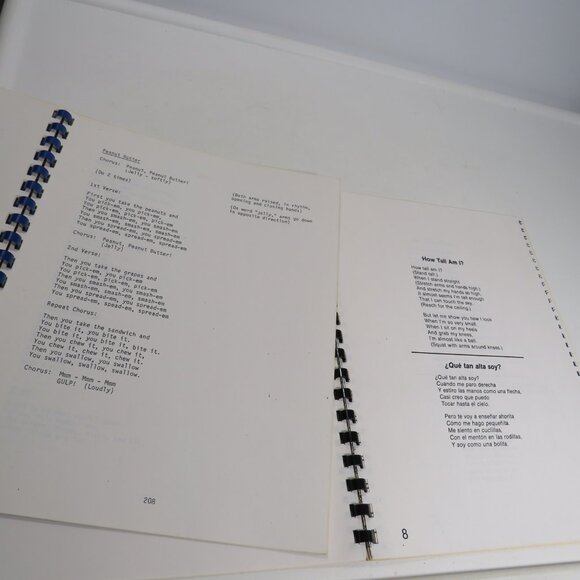 Peanut Butter
Chorus: Peanut, Peanut Butter!
(Jelly - softly)
(Do 2 times)
1st Verse:
First you take the peanuts and
You pick-em, you pick-em,
You pick-em, pick-em, pick-em
Then you smash-em, you smash-em
You smash-em, smash-em, smash-em
Then you spread-em, you spread-em
You spread-em, spread-em, spread-em
Chorus: Peanut, Peanut Butter!
(Jelly)
2nd Verse:
Then you take the grapes and
You pick-em, you pick-em
You pick-em, pick-em, pick-em
Then you smash-em, you smash-em
You smash-em, smash-em, smash-em
Then you spread-em, you spread-em
You spread-em, spread-em, spread-em.
Repeat Chorus:
Then you take the sandwich and
You bite it, you bite it,
You bite it, you bite it, bite it.
Then you chew it, you chew it
You chew it, chew it, chew it.
Then you swallow, you swallow
You swallow, swallow, swallow.
Chorus: Mmm - Mmm - Mmm
GULP! (Loudly)
(Both arms raised, in rhythm,
opening and closing hands)
(On word "jelly," arms go down
in opposite direction)
208
How Tall Am I?
How tall am I?
(Stand tall.)
When I stand straight
(Stretch arms and hands high.)
And stretch my hands so high,
It almost seems I'm tall enough
That I can touch the sky.
(Reach for the ceiling.)
But let me show you how I look
When I'm so very small,
When I sit on my heels
And grab my knees,
I'm almost like a ball.
(Squat with arms around knees.)
¿Qué tan alta soy?
¿Qué tan alta soy?
Cuando me paro derecha
Y estiro las manos como una flecha,
Casi creo que puedo
Tocar hasta el cielo.
Pero te voy a enseñar ahorita
Cómo me hago pequeñita.
Me siento en cuclillas,
Con el mentón en las rodillas,
Y soy como una bolita.
8